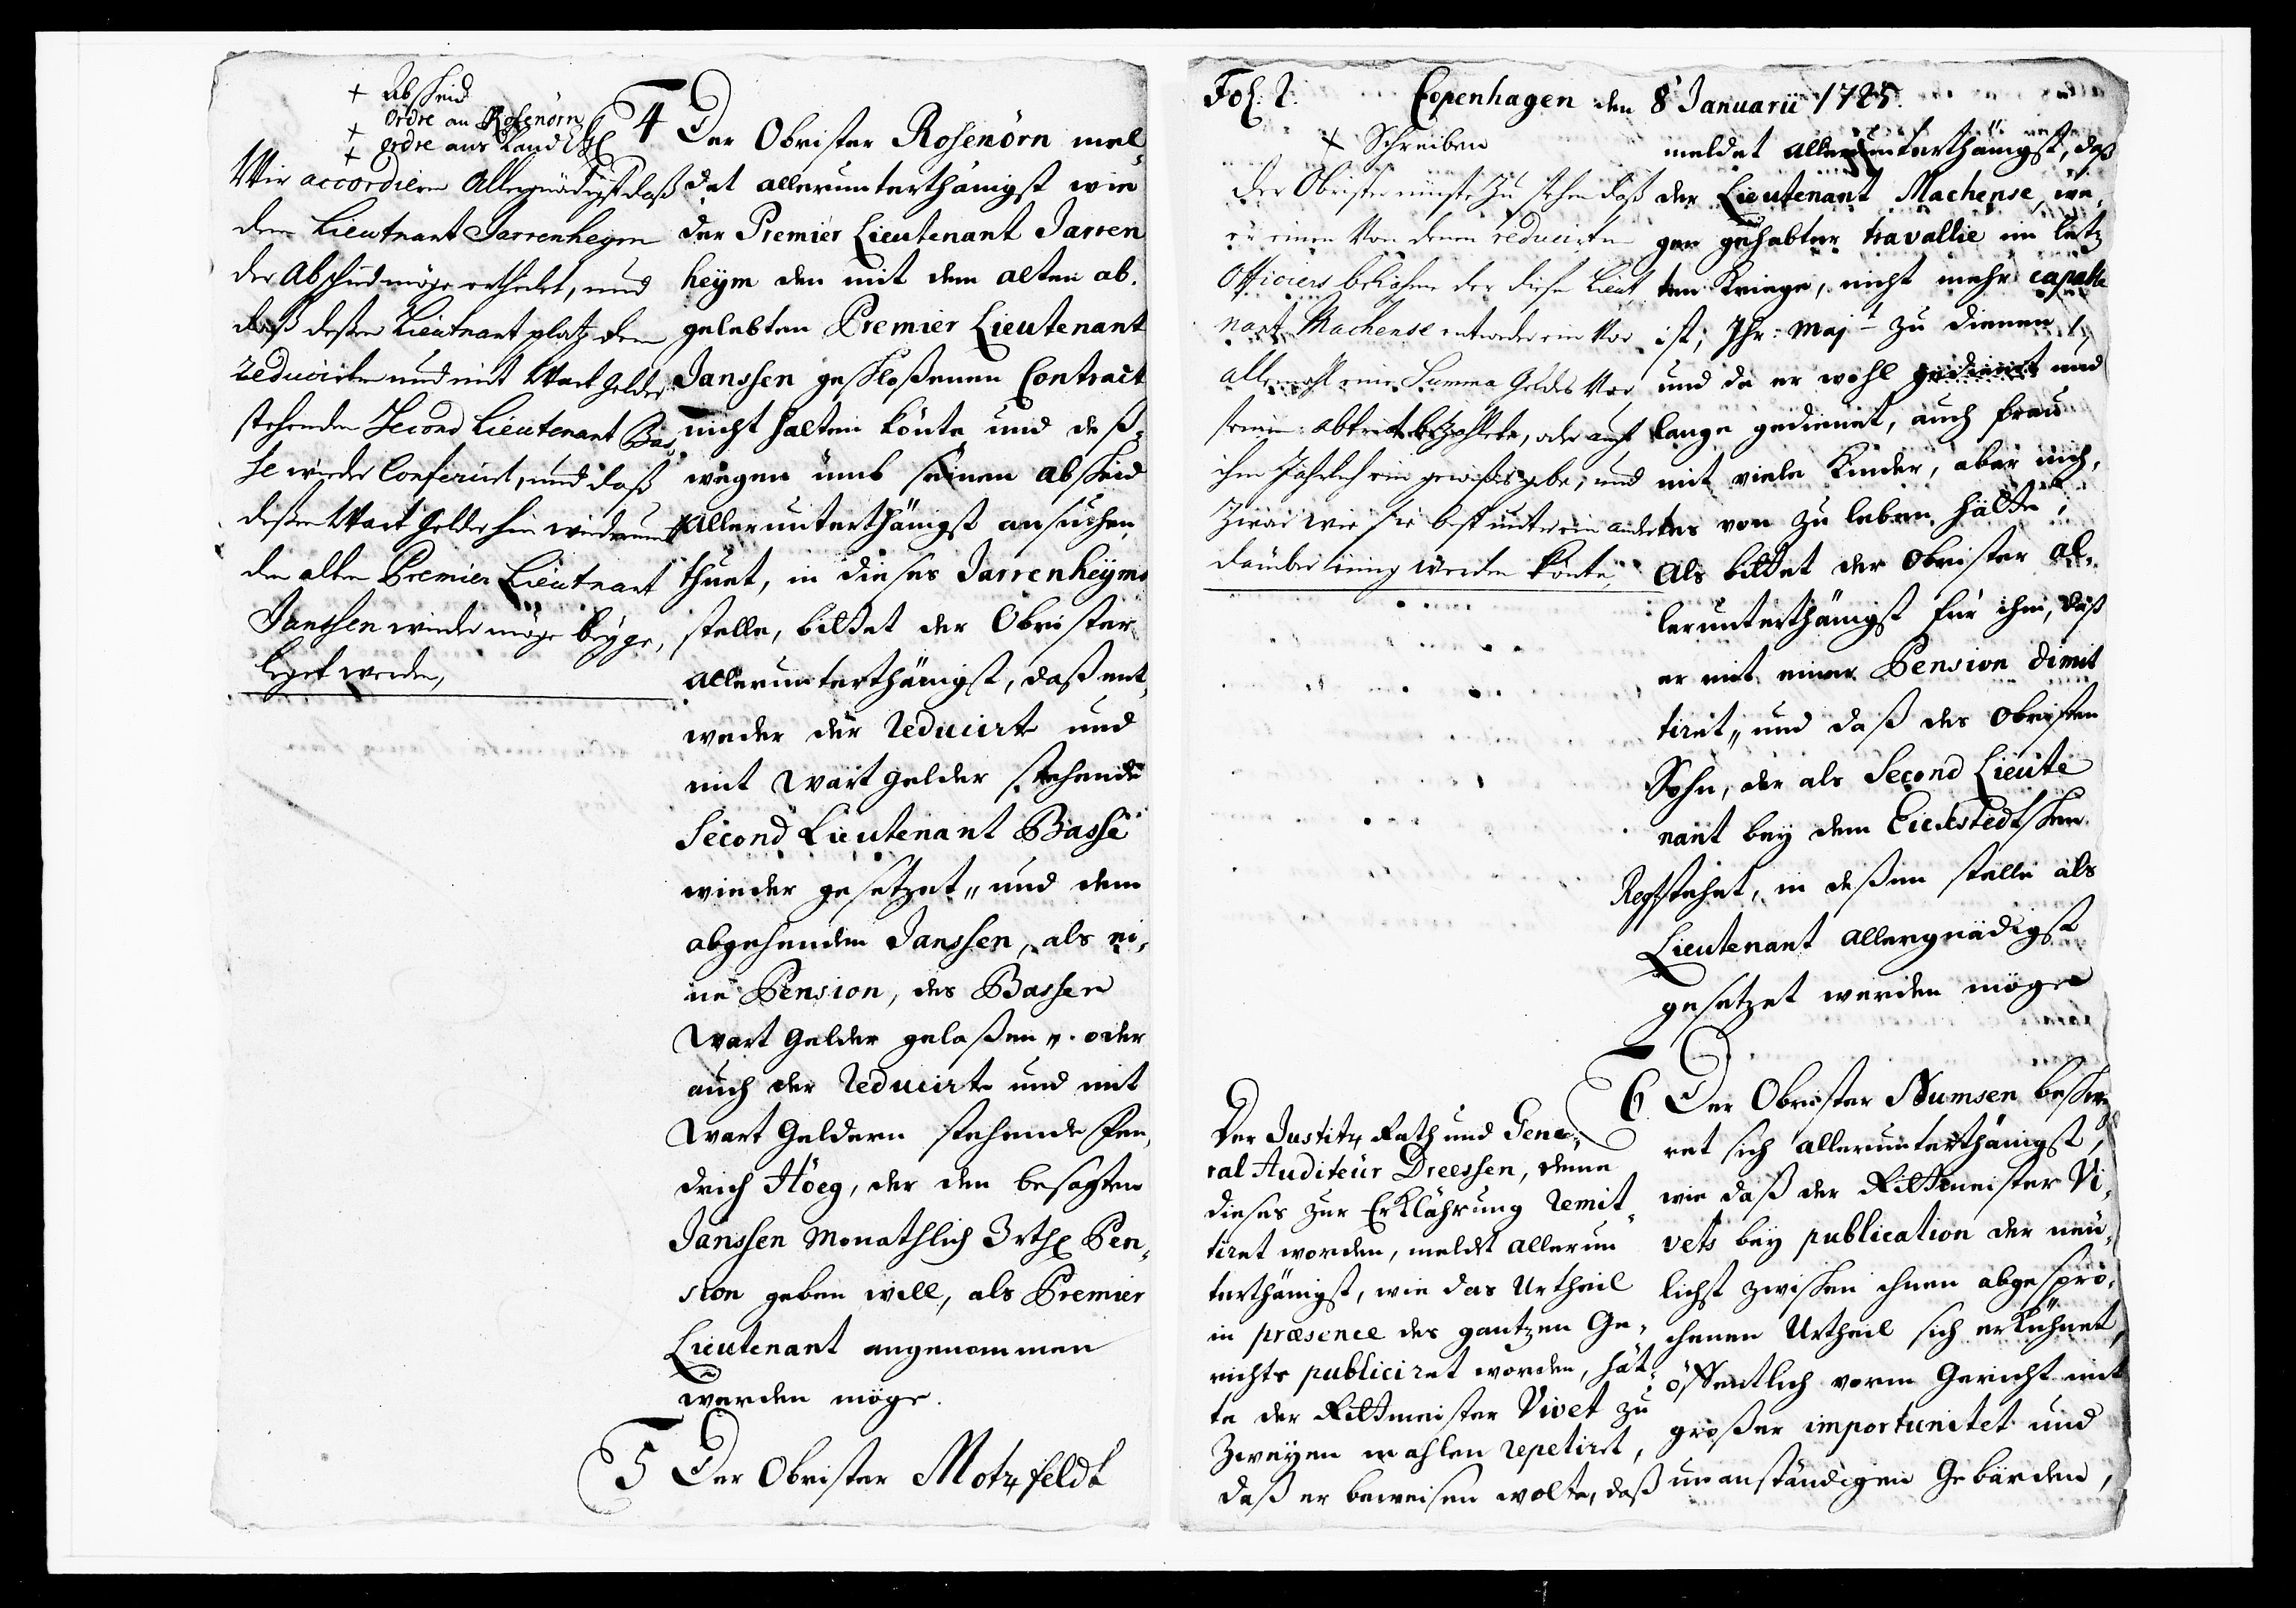 + Abscheid
+ Ordre an Rosenörn
+ ordre ans Land
Wir accordiren Allergnädigst daß
dem Lieutnant Jarrenheym
der Abschied möge ertheilet, und
daß deßen Lieutnant platz dem
reducirten und mit Wart Gelder
stehenden Second Lieutenant Bas,
se wieder Conferiret, und daß
deßen Wart Gelder hin wiederumb
den alten Premier Lieutnant
Janssen wieder möge beyge,
leget werden,
4 Der Obrister Rosenörn mel,
det allerunterthänigst wie
der Premier Lieutenant Jarren
heym den mit dem alten ab,
gelebten Premier Lieutenant
Janssen geschloßenen Contract
nicht halten könte und deß,
wegen umb seinen abscheid
allerunterthänigst ansuchen
thuet, in dieses Jarrenheyms
stelle, bittet der Obrister
allerunterthänigst, daß ent,
weder der reducirte und
mit Wart gelder stehende
Second Lieutenant Basse
wieder gesetzet, und dem
abgehenden Janssen, als ei,
ne Pension, des Bassen
Wart Gelder gelaßen, oder
auch der reducirte und mit
Wart Geldern stehende Fen,
drich Höeg, der den besagten
Janssen Monathlich 3 rthl Pen,
sion geben will, als Premier
Lieutenant angenommen
werden möge.
5 Der Obrister Motzfeldt
Fol: 2. Copenhagen den 8 Januarii 1725.
+ Schreiben
Der Obrister müste zu sehen daß
er einen Von denen reducirten
Officiers bekähme der diese Lieut,
nant Machense entweder ein Vor
allemahl eine Summa Geldes Vor
seinen abtrit bezahlete, oder auch
ihm Jahrlich ein gewißes gebe, und
zwar wie sie best unter ein ander
darüber einig werden könte,
meldet allerunterthänigst, daß
der Lieutenant Machense, we,
gen gehabter travallie im letz
ten Kriege, nicht mehr capable
ist, Ihr: Majt zu dienen,
und da er wohl gedienet und
lange gedienet, auch frau
mit viele Kinder, aber nich,
tes von zu leben hätte,
Als bittet der Obrister al,
lerunterthänigst für ihm, daß
er mit einer Pension dimit
tiret, und daß des Obristen
Sohn, der als Second Lieute
nant bey dem Eickstedtschen
Regt stehet, in deßen stelle als
Lieutenant allergnädigst
gesetzet werden möge
Der Justitz Rath und Gene,
ral Auditeur Dreessen, deme
dieses zur Erklährung remit,
tiret worden, meldet allerun
terthänigst, wie das Urtheil
in præsence des gantzen Ge,
richts publiciret worden, hät,
te der Rittmeister Vivet zu
Zweyen mahlen repetiret,
daß er beweisen wolte, daß
6 Der Obrister Numsen beschwe
ret sich allerunterthänigst,
wie daß der Rittmeister Vi,
vets bey publication der neu,
lichst zwischen ihnen abgespro,
chenen Urtheil sich erkühnet,
öffentlich vorm Gericht mit
großer importunitet und
unanständigen Gebärden,